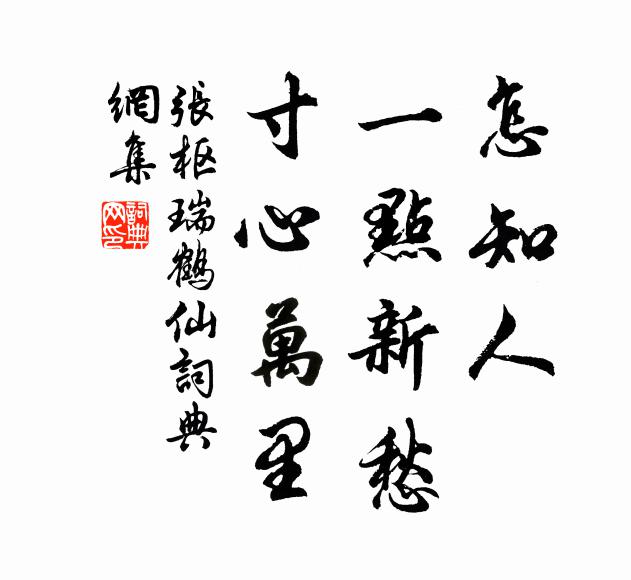 怎知人
一點新愁
寸心萬里
張枢瑞鶴仙詞典
網集
詞典
网印